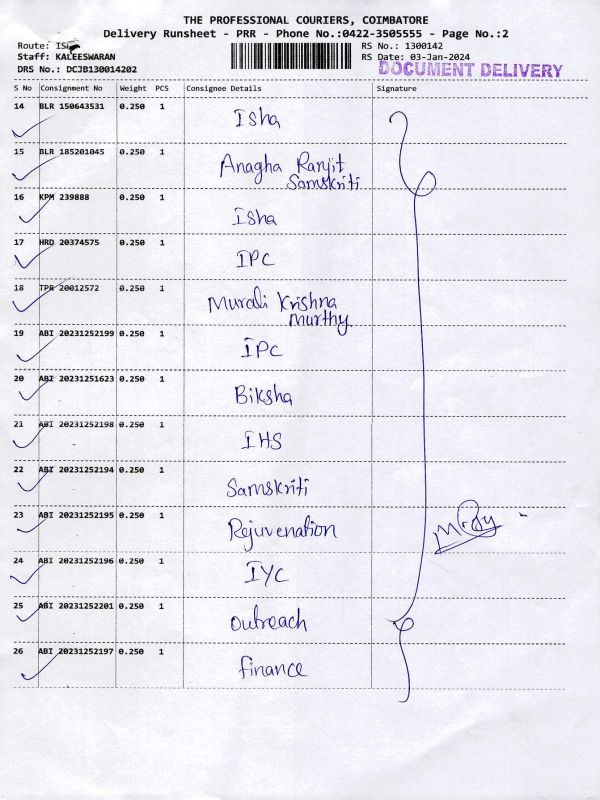 THE PROFESSIONAL COURIERS, COIMBATORE
Delivery Runsheet - PRR - Phone No.:0422-3505555 - Page No.:2
Route:
Staff: KALEESWARAN
DRS No.: DCJB130014202
RS No.: 1300142
RS Date: 03-Jan-2024
DOCUMENT DELIVERY
S No Consignment No Weight PCS Consignee Details Signature
14 BLR 150643531 0.250 1 Isha
15 BLR 185201045 0.250 1 Anagha Ranjit
Samskriti
16 KPM 239888 0.250 1 Isha
17 HRD 20374575 0.250 1 IPC
18 TPR 20012572 0.250 1 Murali Krishna
Murthy
19 ABI 20231252199 0.250 1 IPC
20 ABI 20231251623 0.250 1 Biksha
21 ABI 20231252198 0.250 1 IHS
22 ABI 20231252194 0.250 1 Samskriti
23 ABI 20231252195 0.250 1 Rejuvenation
24 ABI 20231252196 0.250 1 IYC
25 ABI 20231252201 0.250 1 outreach
26 ABI 20231252197 0.250 1 finance